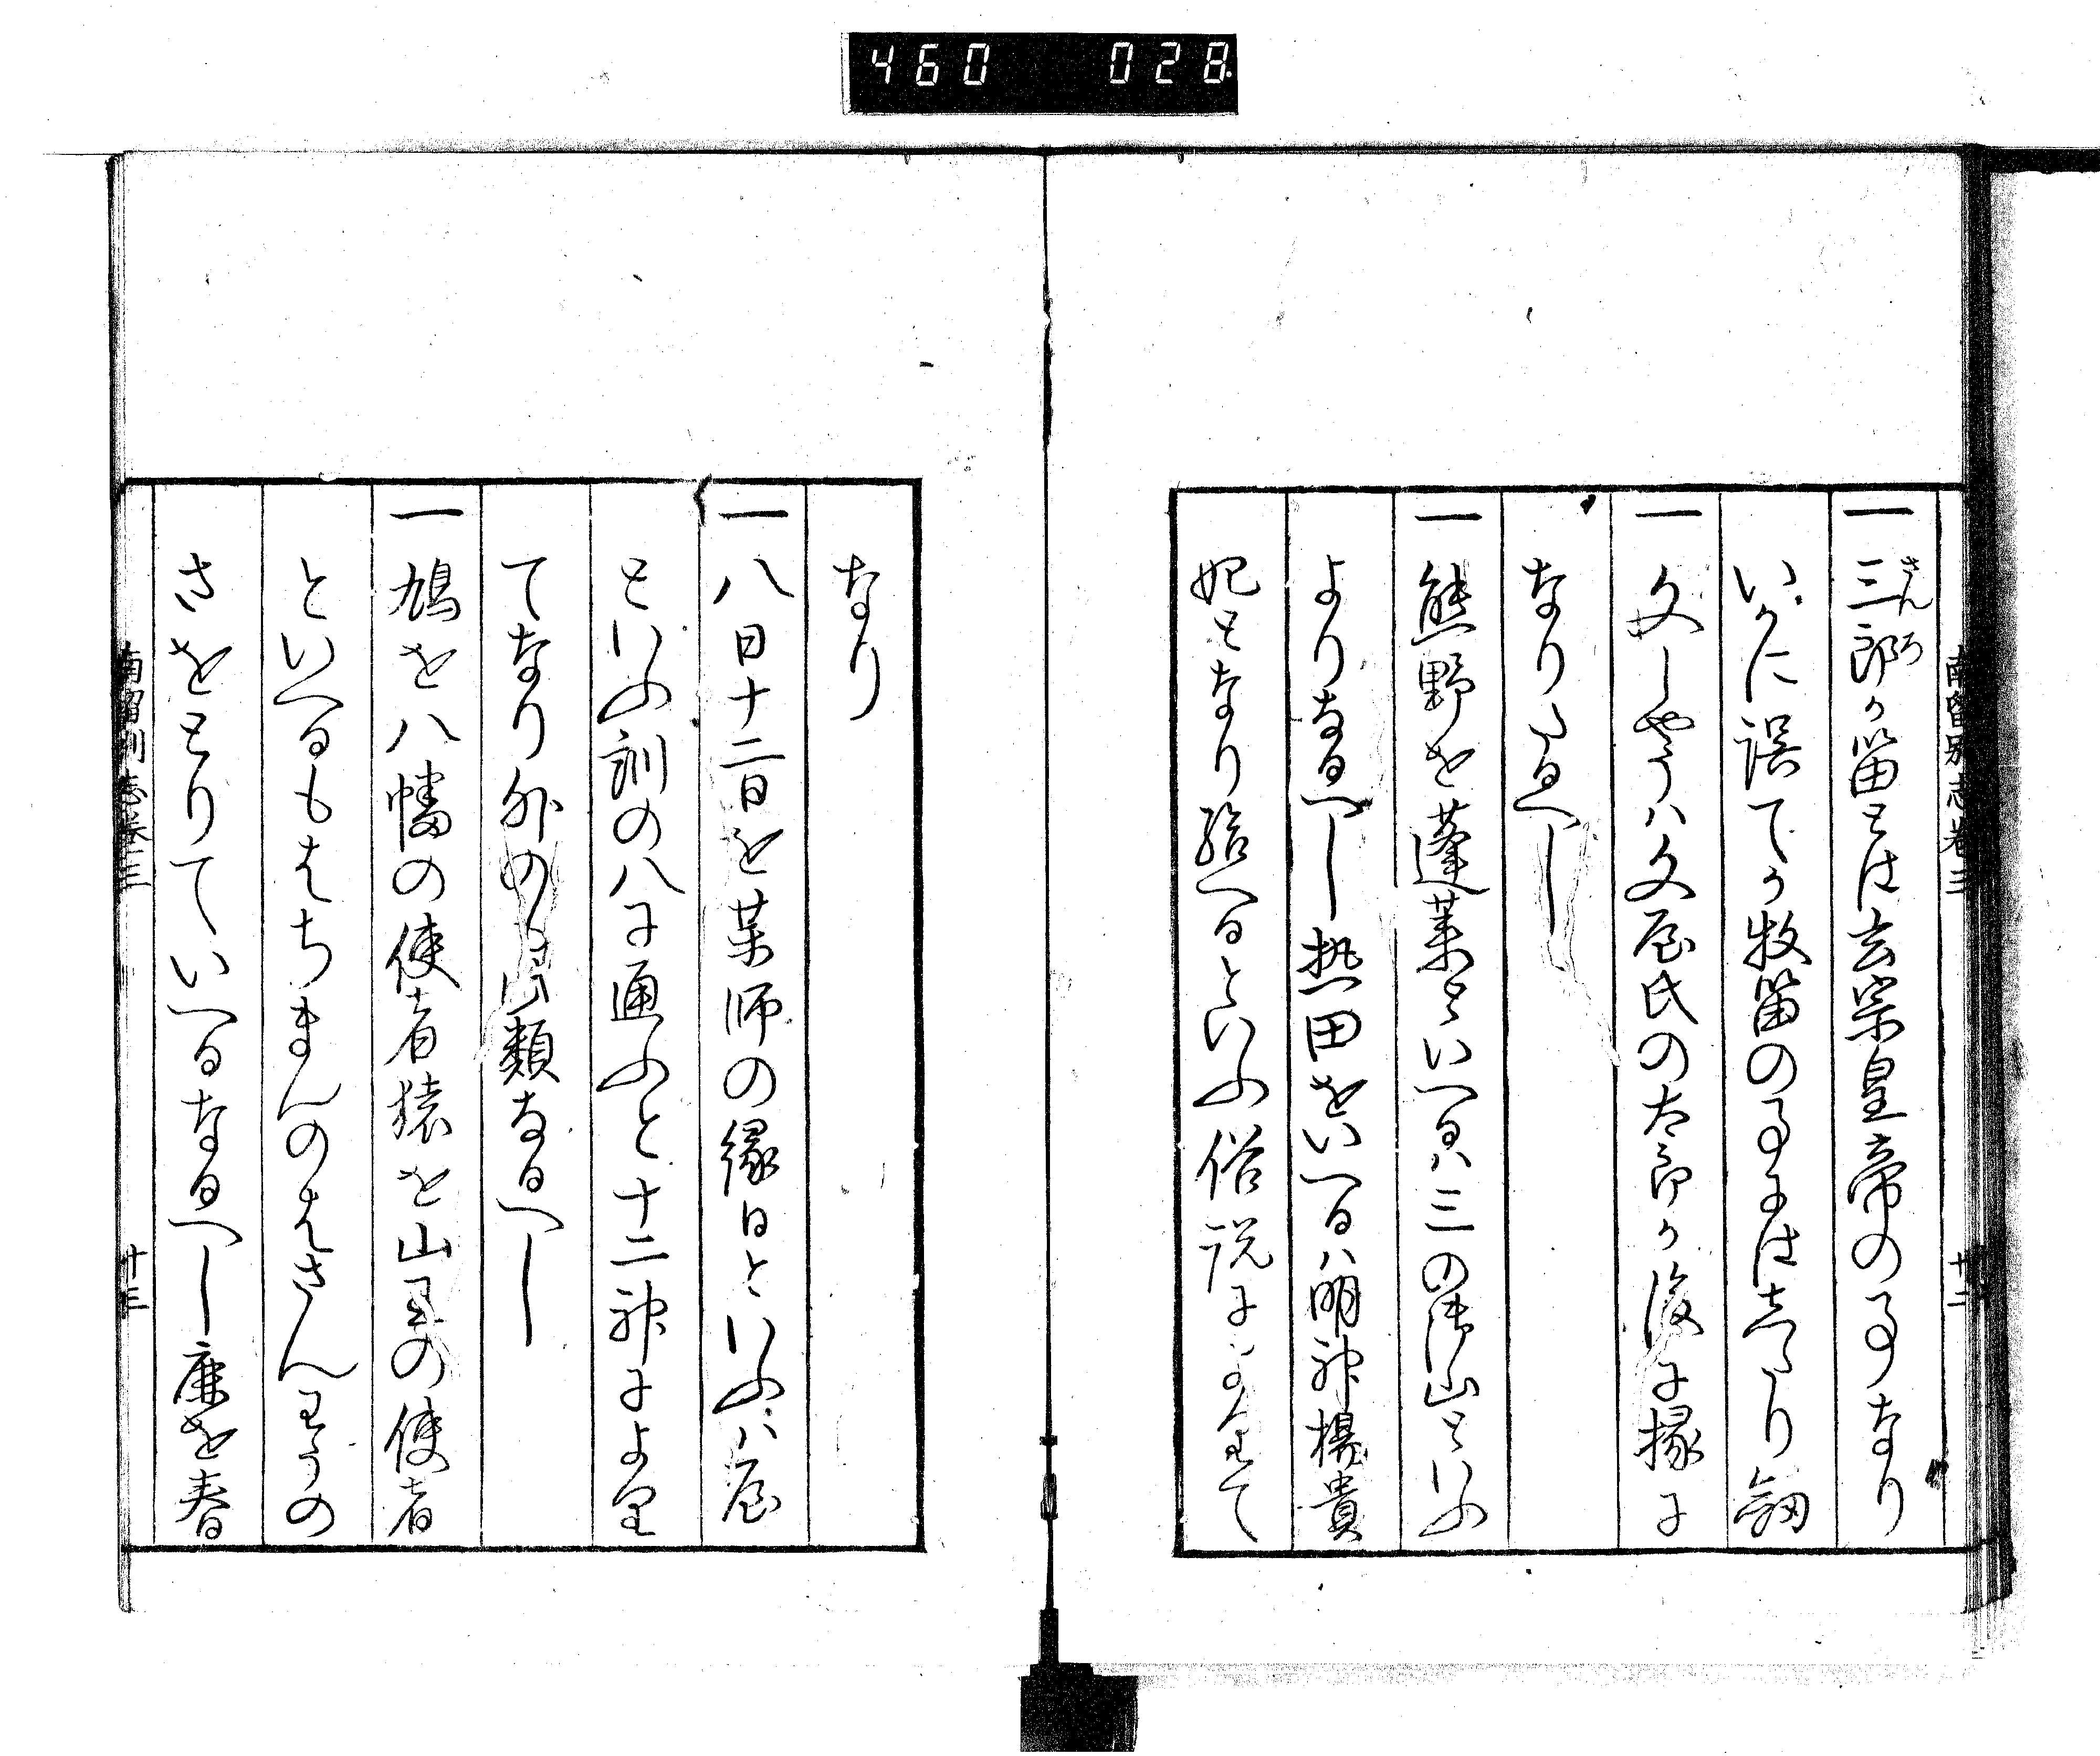 460 028
南留別志巻三
廿二
一三郎か笛とは玄宗皇帝の事なり
さんろ
いかに誤てか牧笛の事にはなしたり
一文しやうハ文屋氏の太郎か後に縁に
なりたるへし
一熊野を蓬莱といへるハ三の御山といふ
よりなるへし熱田をいへるハ明神楊貴
妃となり給へるといふ俗説によりて
なり
一八日十二日を薬師の縁日といふハ屋
といふ訓の八に通ふと十二神により
てなり外の類なるへし
一鳩を八幡の使者猿を山王の使者
といへるもはちまんのはさんわうの
さをとりていへるなるへし鹿を春
南留別志巻三
廿三